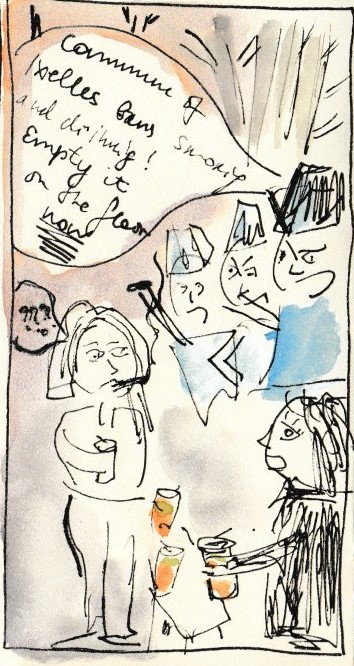 Commune of
Ixelles bans smoking
and drinking!
Empty it
on the floor
now